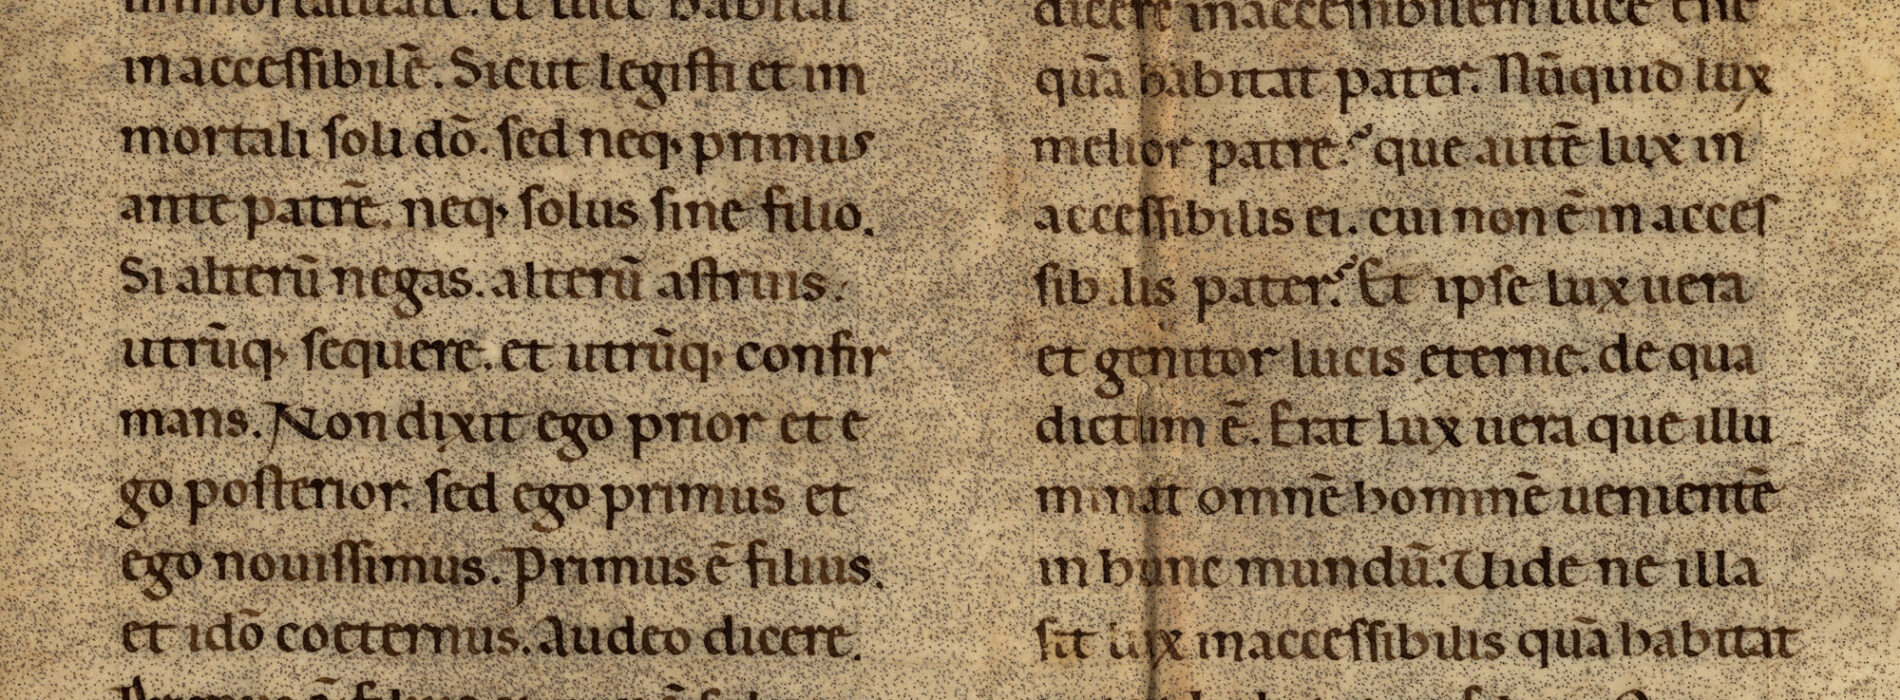 immortalitatē. et lucē habitat
in accessibilē. Sicut legisti et im
mortali soli dō. sed neq; primus
ante patrē. neq; solus sine filio.
Si alterū negas. alterū astruis.
utrūq; sequere. et utrūq; confir
mans. Non dixit ego prior et e
go posterior. sed ego primus et
ego nouissimus. Primus ē filius.
et idō coeternus. Audeo dicere.
dicere inaccessibilem luce esse
quā habitat pater. Nūquid lux
melior patre? que autē lux in
accessibilis ei. cui non ē in acces
sibilis pater? Et ipse lux uera
et genitor lucis eterne. de qua
dictum ē. Erat lux uera que illu
minat omnē hominē uenientē
in hunc mundū. Uide ne illa
sit lux inaccessibilis quā habitat